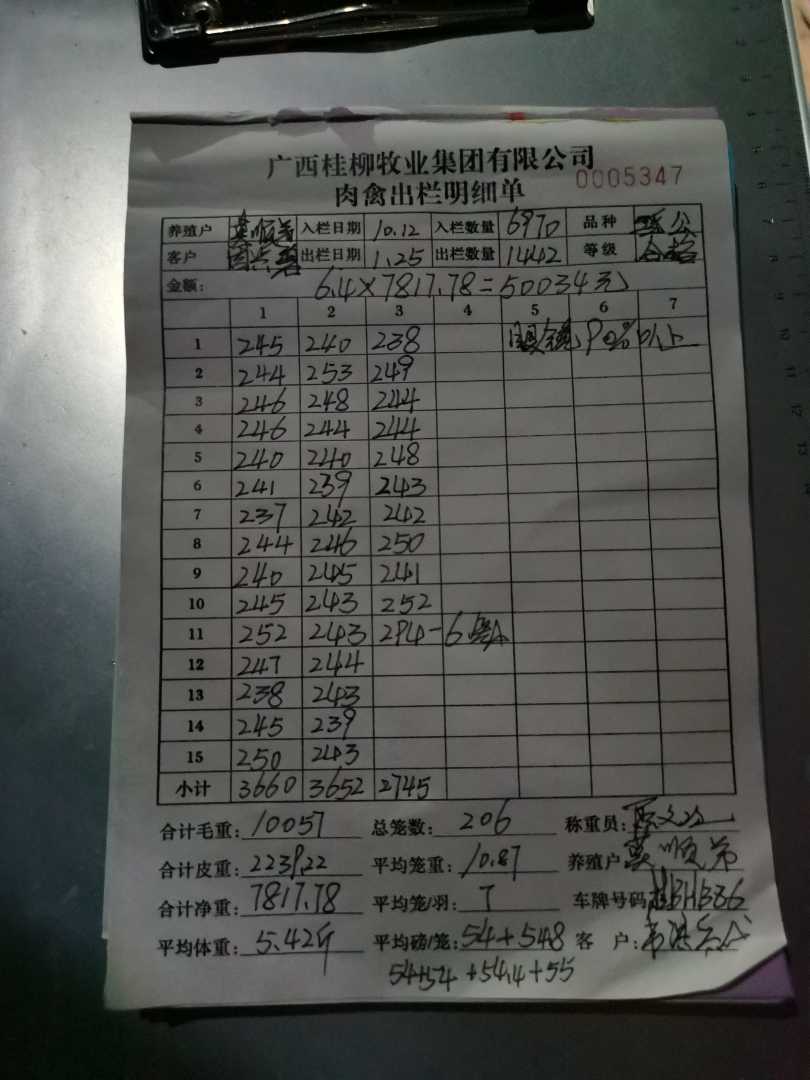 广西桂柳牧业集团有限公司
肉禽出栏明细单 0005347
养殖户 入栏日期 10.12 入栏数量 6970 品种 公
客户 出栏日期 1.25 出栏数量 1442 等级 合格
金额: 6.4×7817.78=50034元
1 2 3 4 5 6 7
1 245 240 238 90%以上
2 244 253 249
3 246 248 244
4 246 244 244
5 240 240 248
6 241 239 243
7 237 242 242
8 244 246 250
9 240 245 241
10 245 243 252
11 252 243 294-6
12 247 244
13 238 243
14 245 239
15 250 243
小计 3660 3652 2745
合计毛重: 10057 总笼数: 206 称重员:
合计皮重: 2239.22 平均笼重: 10.87 养殖户 莫顺弟
合计净重: 7817.78 平均笼/羽: 7 车牌号码
平均体重: 5.42斤 平均磅/笼: 54+548 客 户:
54+54+54.4+55